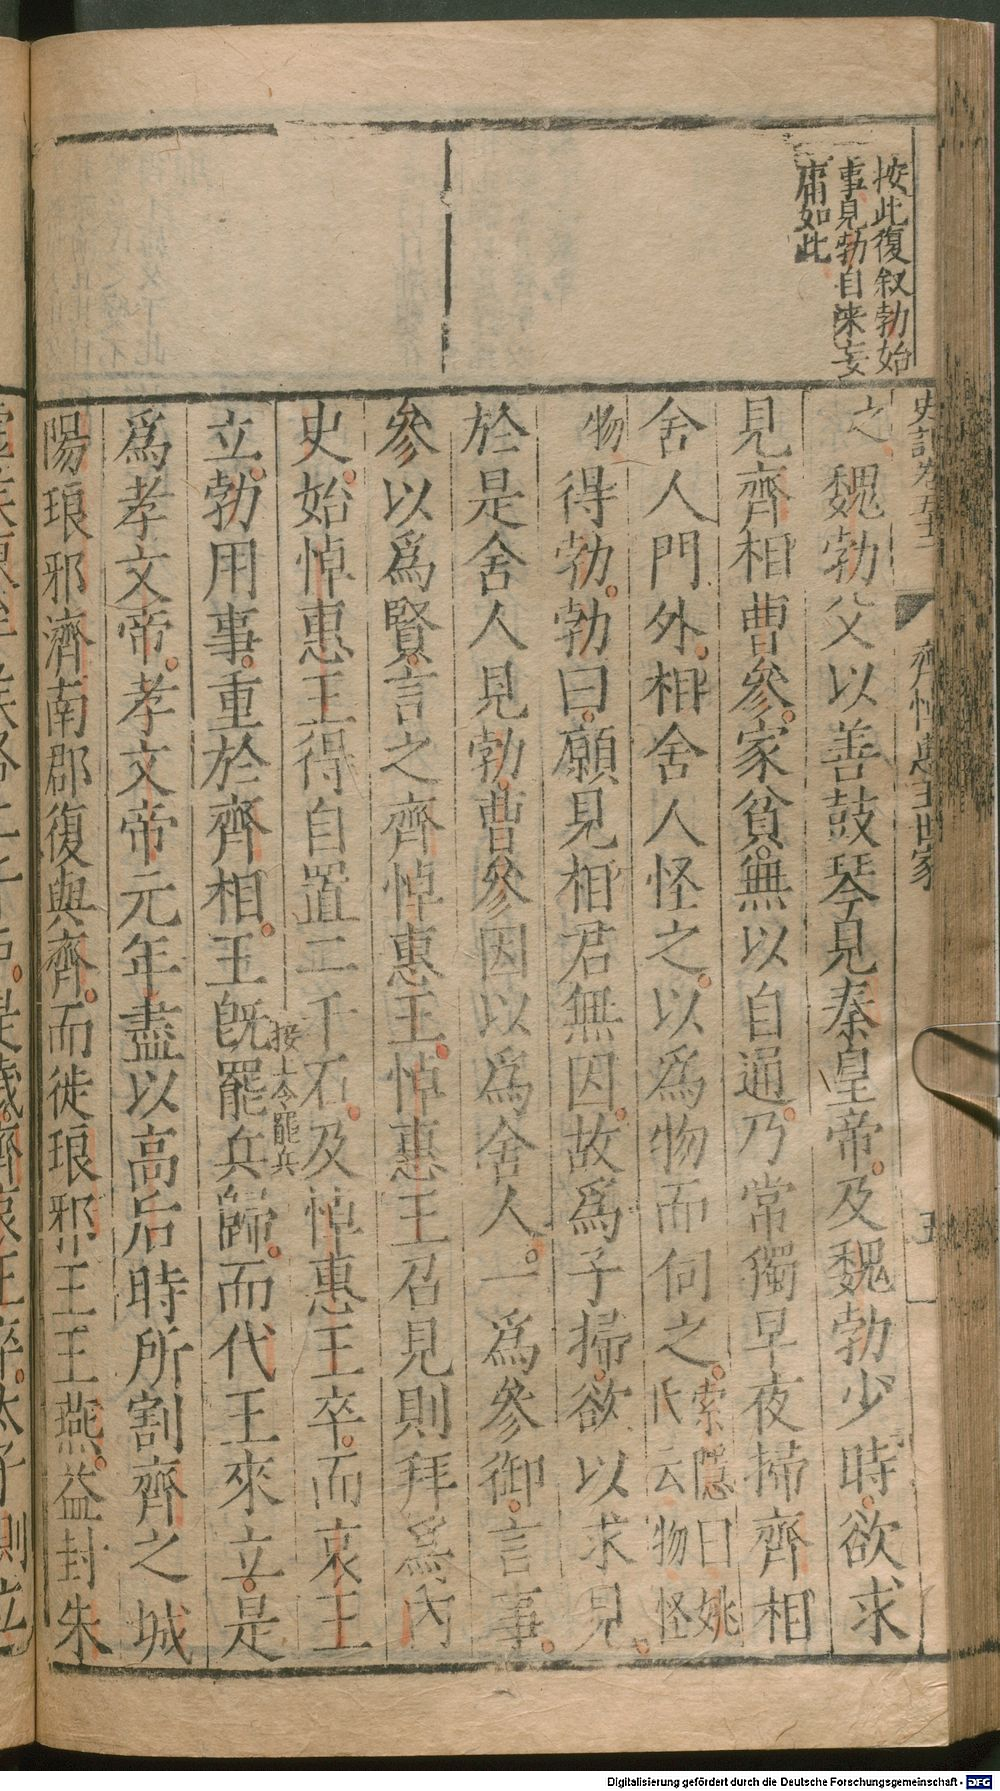 按此復叙勃始
事見勃自来妄
庸如此
史記卷五十二
齊悼惠王世家
五
之魏勃父以善鼓琴見秦皇帝。及魏勃少時。欲求
見齊相曹參。家貧。無以自通。乃常獨早夜掃齊相
舍人門外。相舍人怪之。以爲物而伺之。索隱曰姚
氏云物怪
物得勃。勃曰。願見相君無因。故爲子掃。欲以求見。
於是舍人見勃。曹參因以爲舍人。一爲參御。言事。
參以爲賢。言之齊悼惠王。悼惠王召見則拜爲內
史。始悼惠王得自置二千石。及悼惠王卒。而哀王
立。勃用事。重於齊相。王既罷兵歸。而代王來立。是
按上令罷兵
爲孝文帝。孝文帝元年盡以高后時所割齊之城
陽琅邪濟南郡復與齊。而徙琅邪王王燕。益封朱
Digitalisierung gefördert durch die Deutsche Forschungsgemeinschaft - DFG